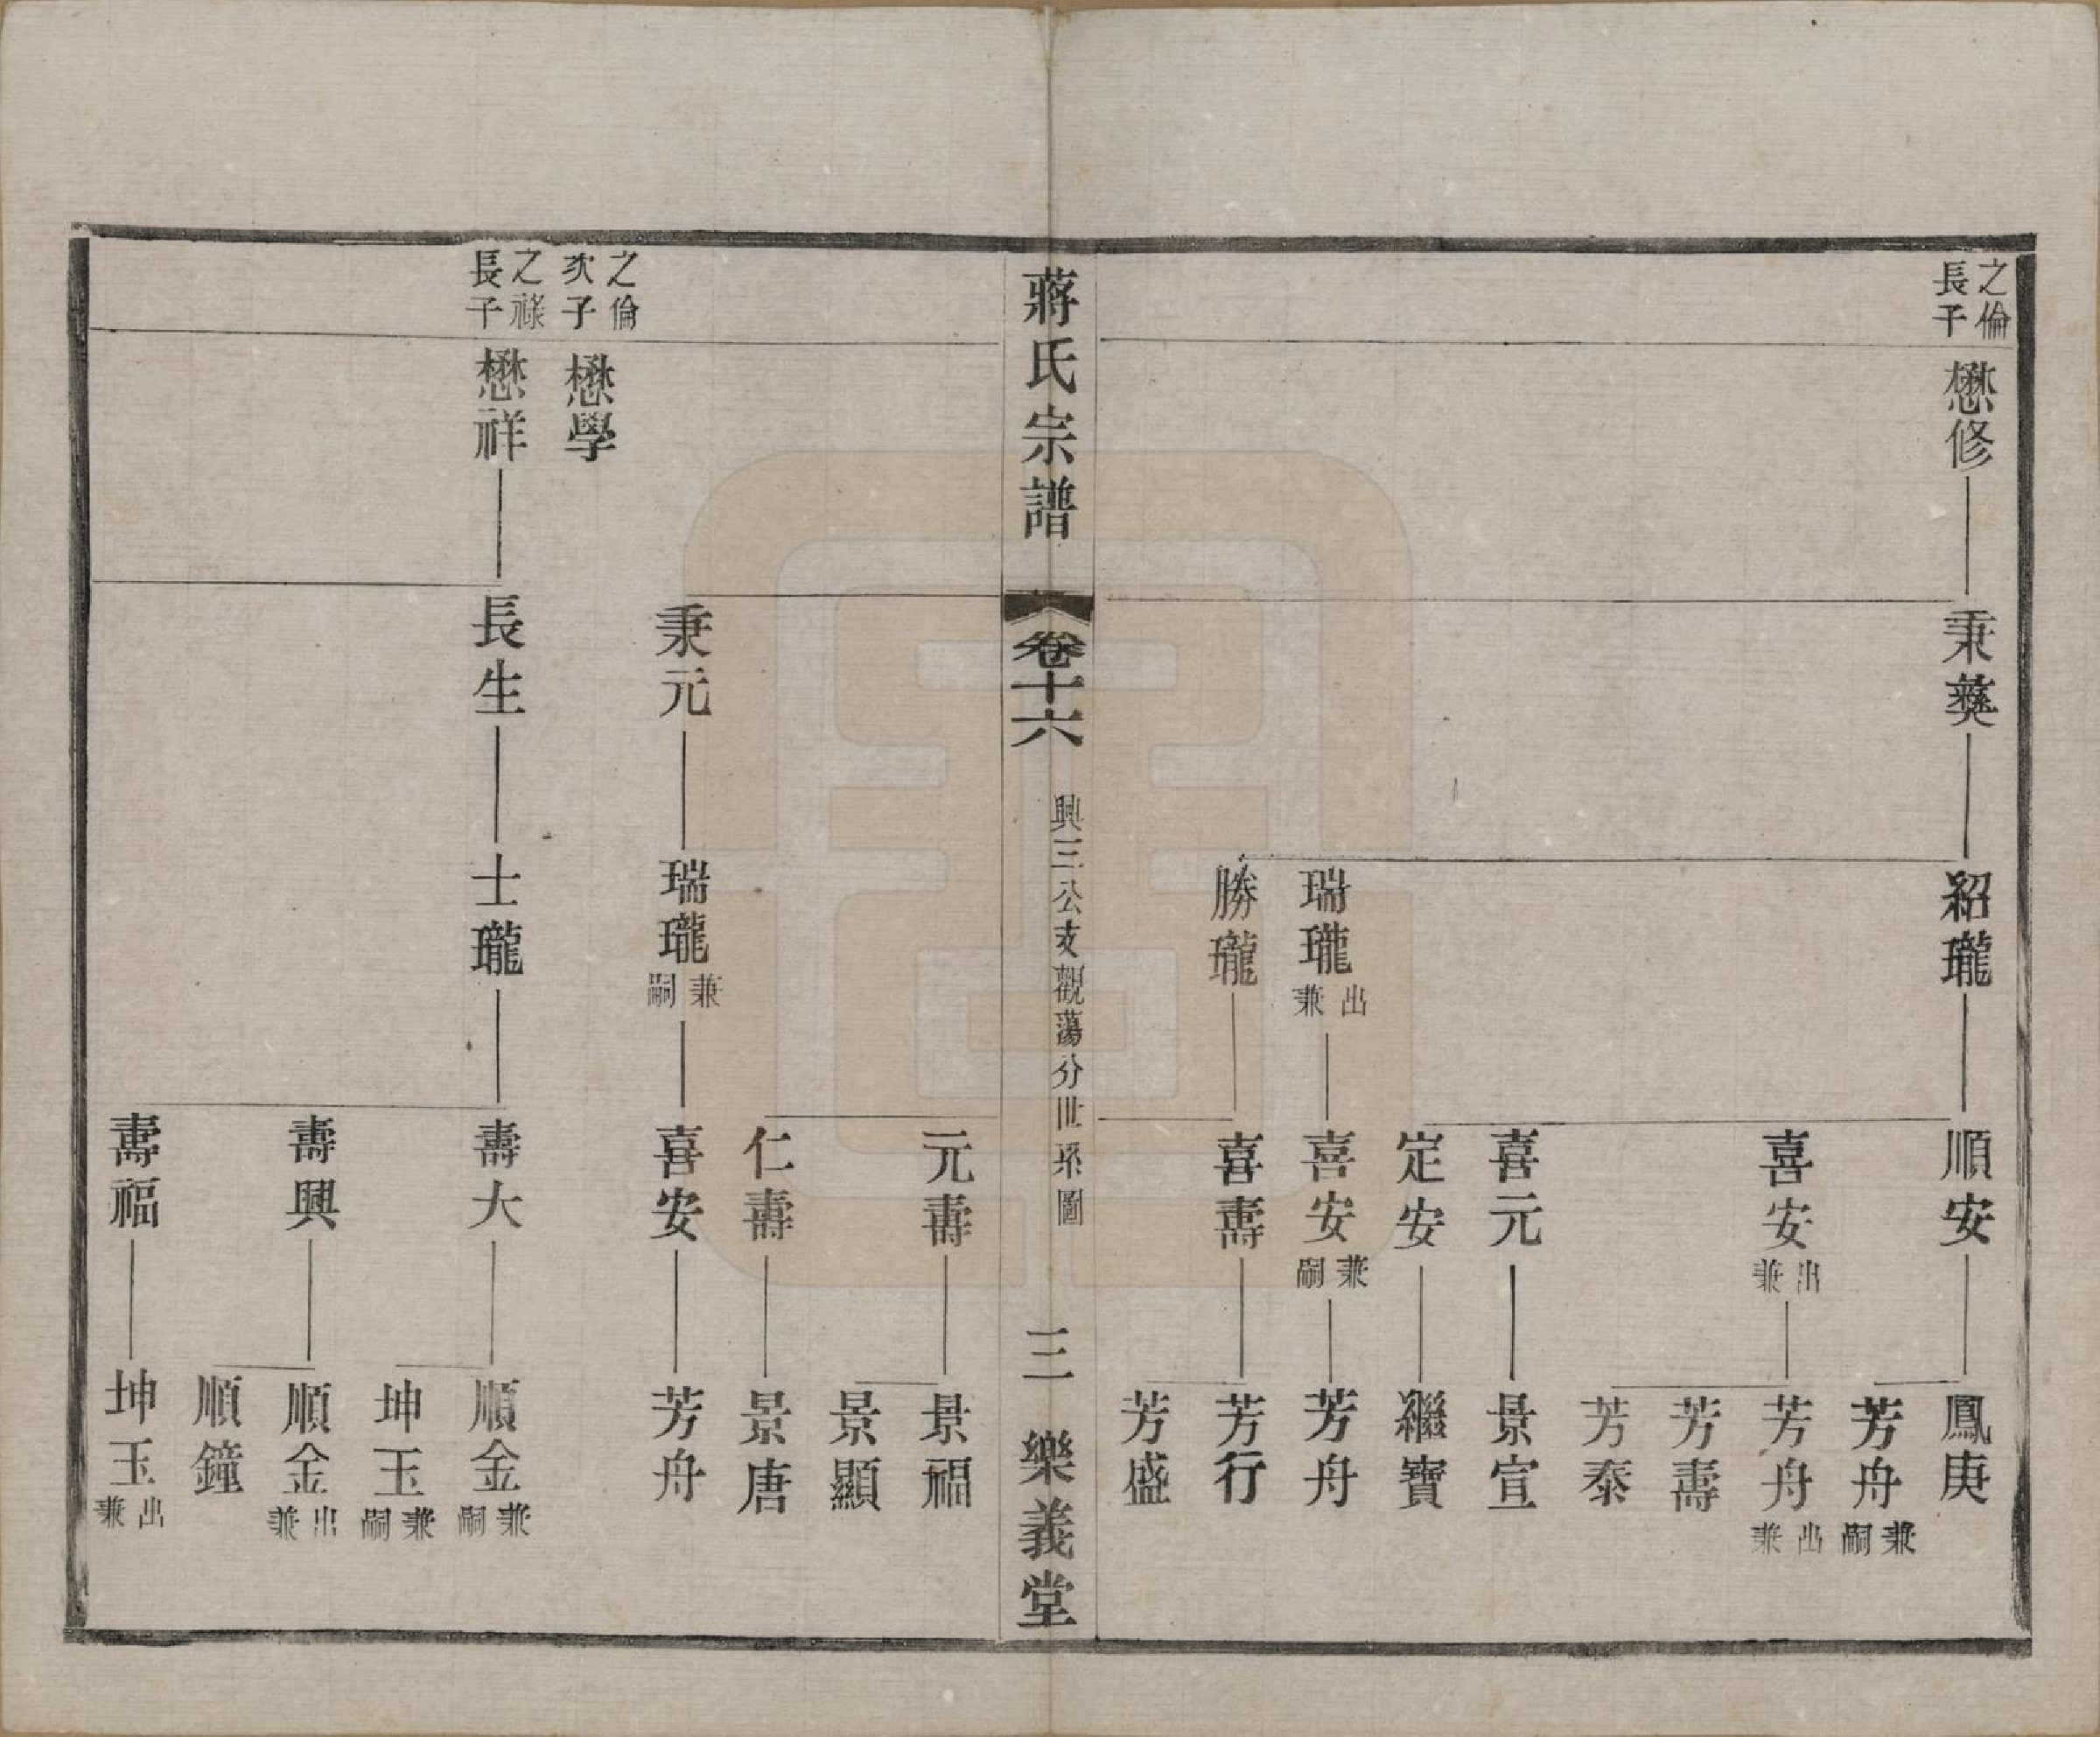 之倫
長子
懋修
秉彝
紹瓏
順安
鳳庚
芳舟
兼嗣
喜安
出兼
芳舟
出兼
芳壽
芳泰
喜元
景宣
定安
繼寶
瑞瓏
出兼
喜安
兼嗣
芳舟
勝瓏
喜壽
芳行
芳盛
蔣氏宗譜
卷十六
興三公支觀蕩分世系圖
三
樂義堂
元壽
景福
景顯
仁壽
景唐
秉元
瑞瓏
兼嗣
喜安
芳舟
之倫
次子
懋學
之祿
長子
懋祥
長生
士瓏
壽大
順金
兼嗣
坤玉
兼嗣
壽興
順金
出兼
順鐘
壽福
坤玉
出兼